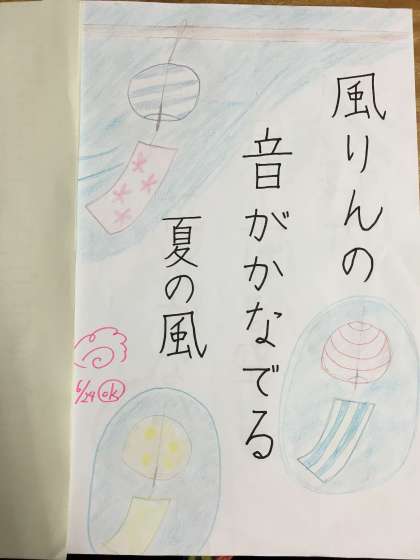 風りんの
音がかなでる
夏の風
6/29 ok